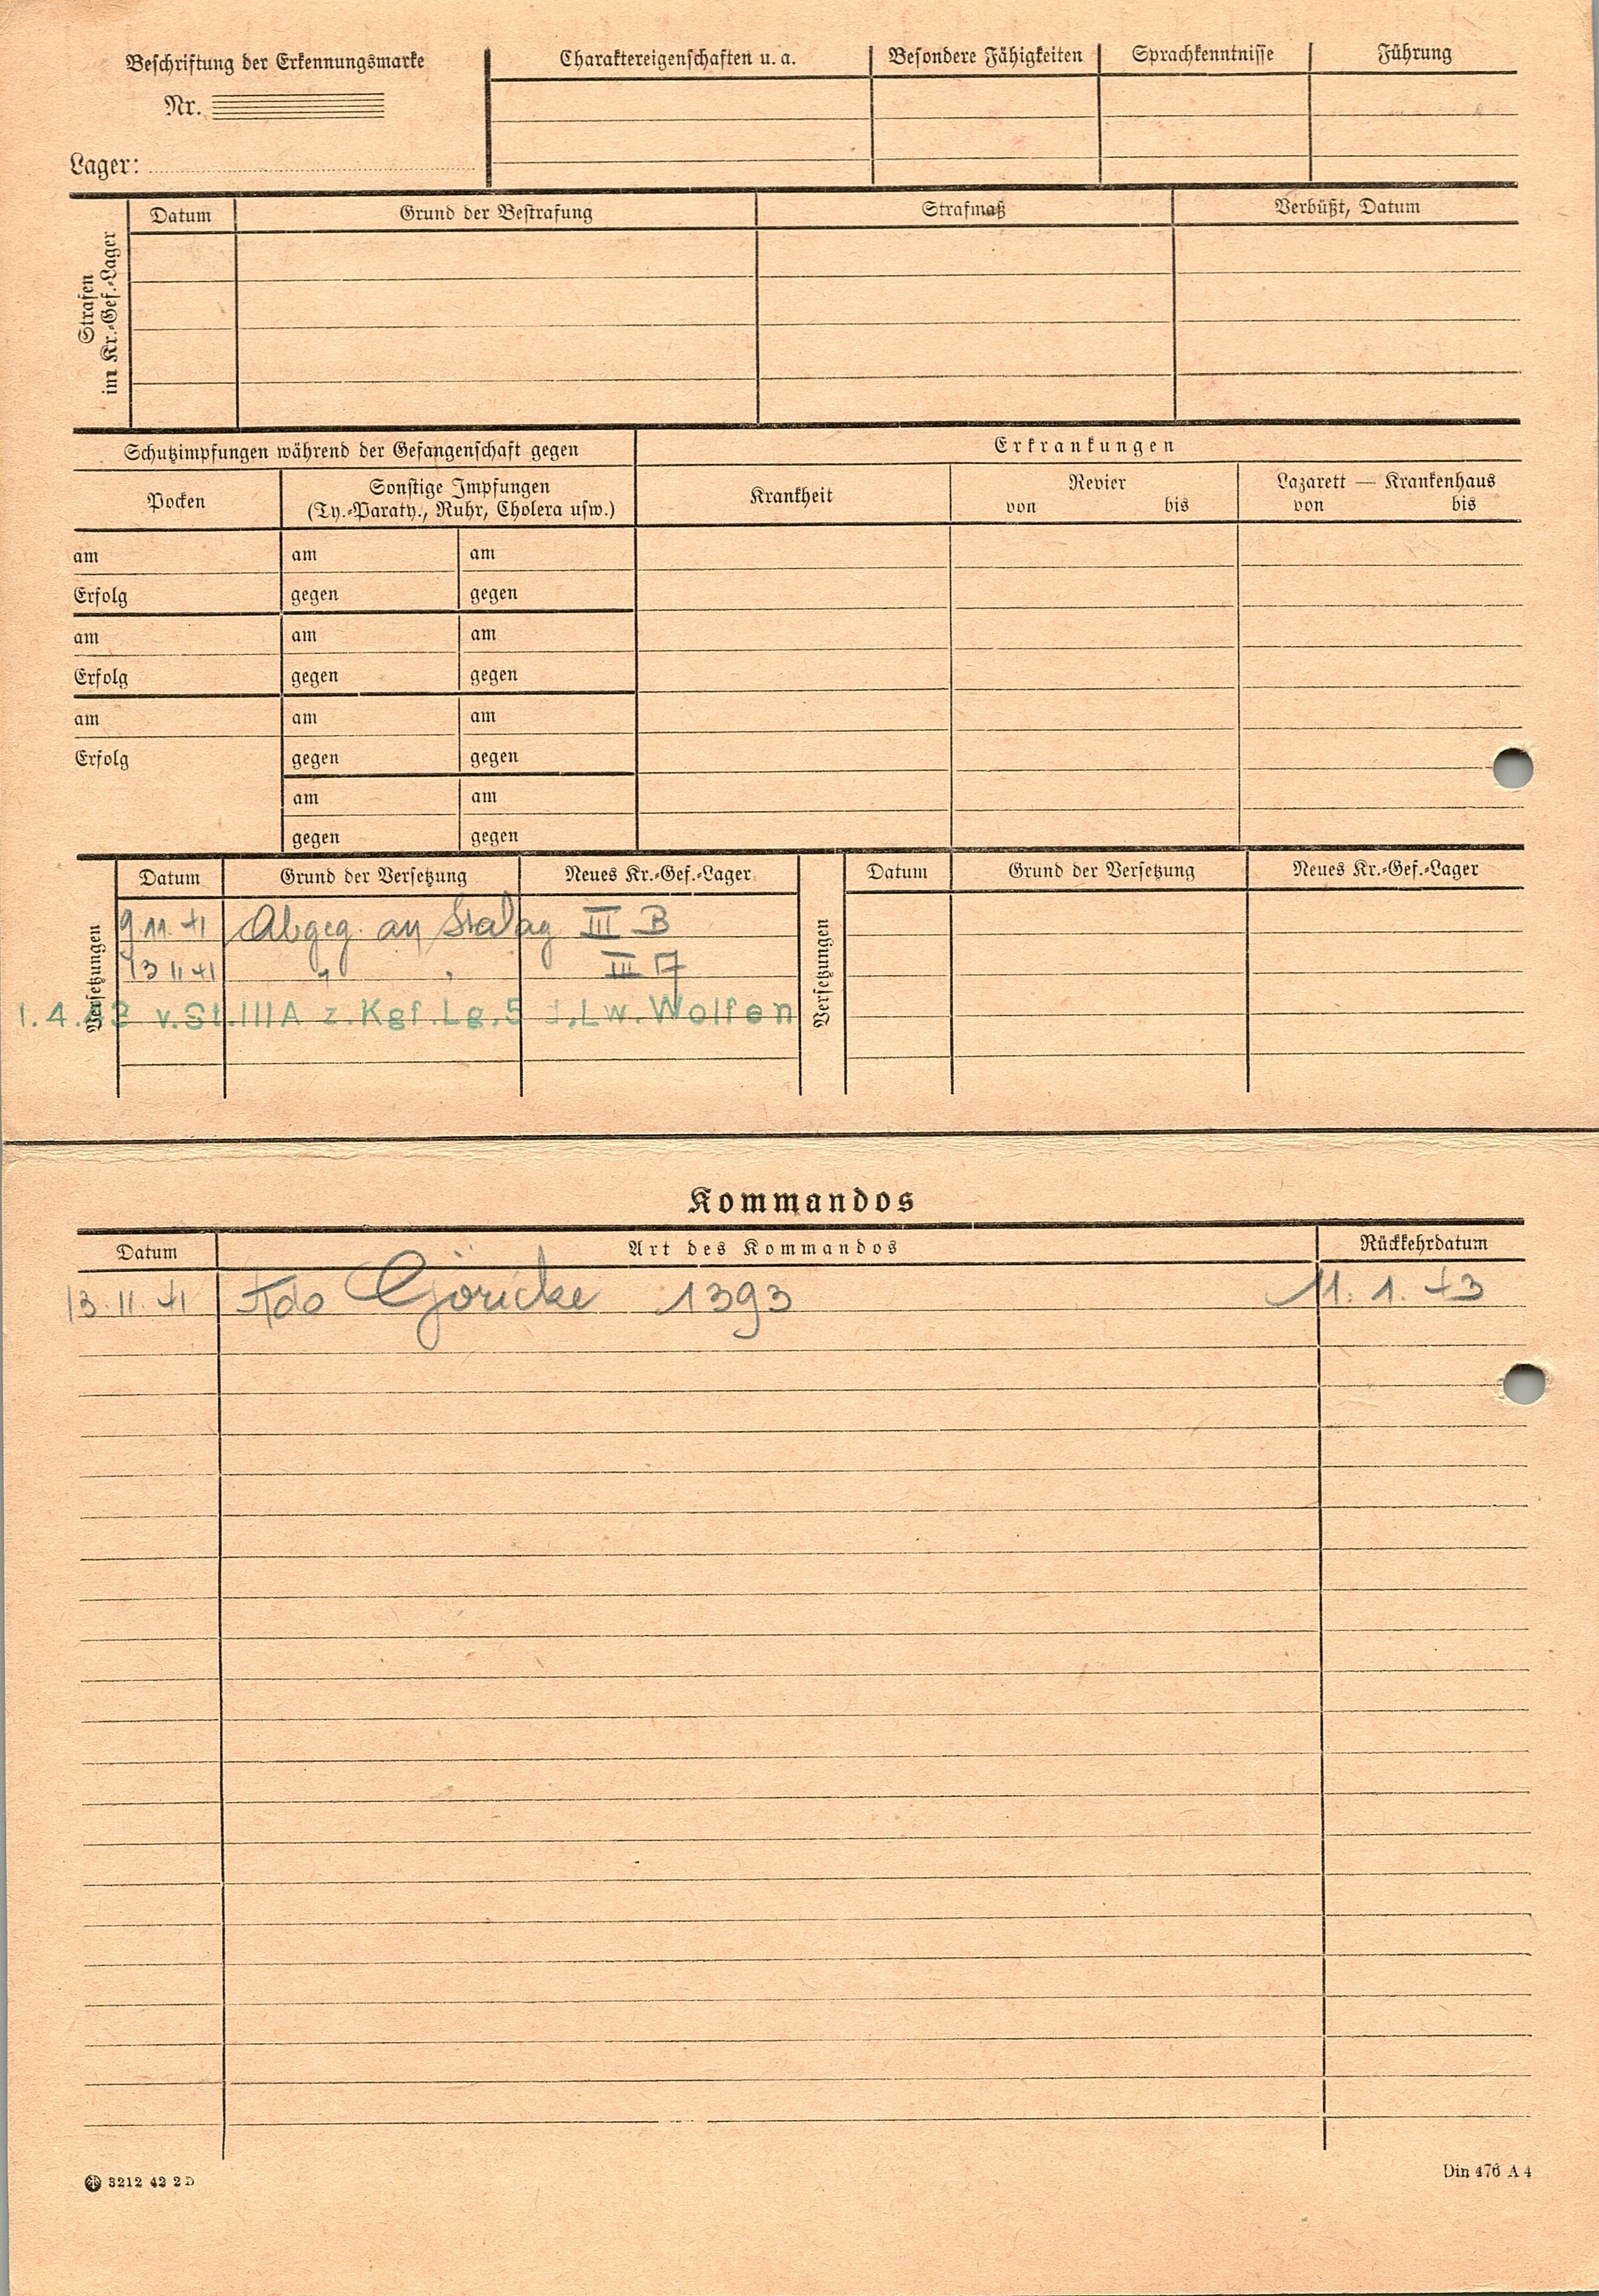 Beschriftung der Erkennungsmarke
Nr.
Lager:
Charaktereigenschaften u. a. Besondere Fähigkeiten Sprachkenntnisse Führung
Strafen
im Kr.-Gef.-Lager
Datum Grund der Bestrafung Strafmaß Verbüßt, Datum
Schutzimpfungen während der Gefangenschaft gegen
Erkrankungen
Pocken
Sonstige Impfungen
(Ty.-Paraty., Ruhr, Cholera usw.)
Krankheit
Revier
von bis
Lazarett — Krankenhaus
von bis
am am am
Erfolg gegen gegen
am am am
Erfolg gegen gegen
am am am
Erfolg gegen gegen
am am
gegen gegen
Versetzungen
Datum Grund der Versetzung Neues Kr.-Gef.-Lager
9.11.41 Abgeg. an Stalag III B
13 11 41 " " III
1.4.43 v.St.IIIA z.Kgf.Lg.5 d.Lw.Wolfen
Versetzungen
Datum Grund der Versetzung Neues Kr.-Gef.-Lager
Kommandos
Datum Art des Kommandos Rückkehrdatum
13.11.41 Kdo Göricke 1393 11.1.43
3212 42 2D
Din 476 A 4